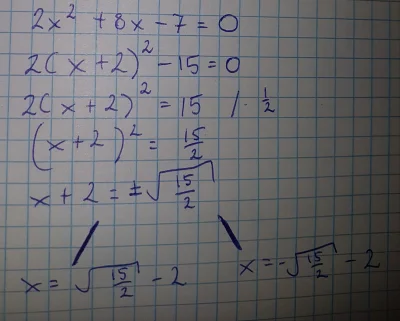 2x² + 8x - 7 = 0
2(x+2)² - 15 = 0
2(x+2)² = 15 /· 1/2
(x+2)² = 15/2
x + 2 = ±√(15/2)
x = √(15/2) - 2
x = -√(15/2) - 2